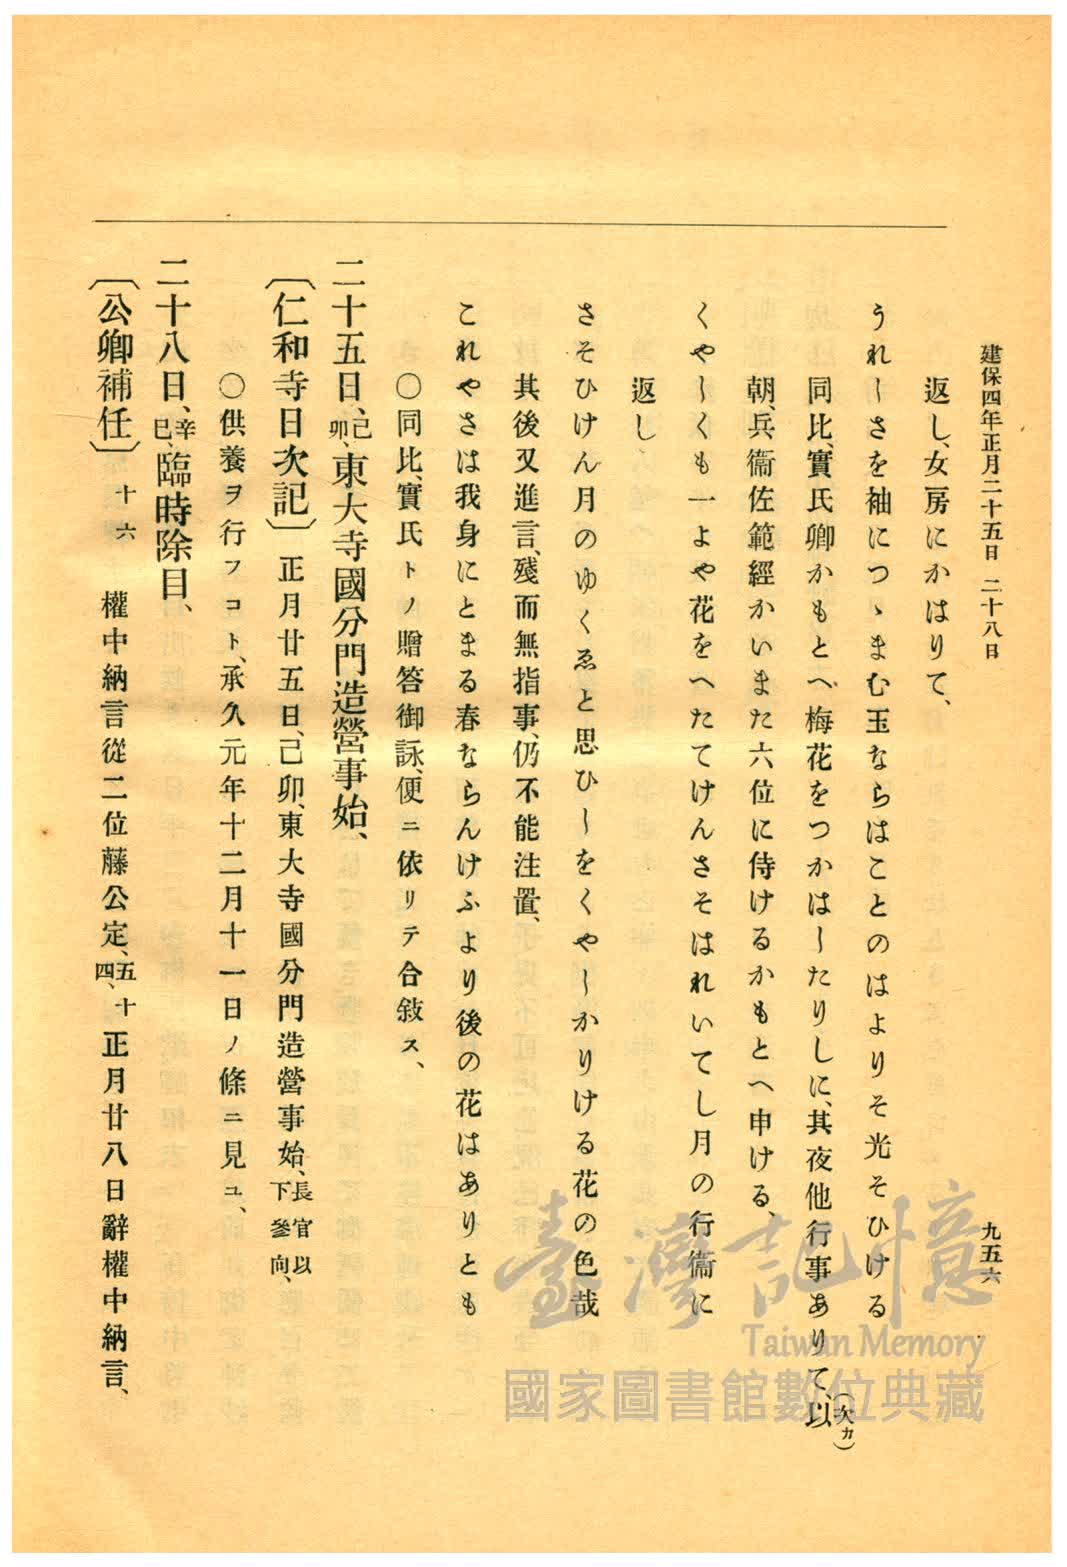 建保四年正月二十五日 二十八日
九五六
返し、女房にかはりて、
うれしさを袖につゝまむ玉ならはことのはよりそ光そひける
同比、實氏卿かもとへ、梅花をつかはしたりしに、其夜他行事ありて、以(次カ)
朝、兵衞佐範經かいまた六位に侍けるかもとへ申ける、
くやしくも一よや花をへたてけんさそはれいてし月の行衞に
返し
さそひけん月のゆくゑと思ひしをくやしかりける花の色哉
其後又進言、殘而無指事、仍不能注置、
これやさは我身にとまる春ならんけふより後の花はありとも
〇同比、實氏トノ贈答御詠、便ニ依リテ合敍ス、
二十五日、己卯、東大寺國分門造營事始、
〔仁和寺日次記〕 正月廿五日、己卯、東大寺國分門造營事始、長官以下參向、
〇供養ヲ行フコト、承久元年十二月十一日ノ條ニ見ユ、
二十八日、辛巳、臨時除目、
〔公卿補任〕 十六 權中納言從二位藤公定、五十四、正月廿八日辭權中納言、
臺灣記憶
Taiwan Memory
國家圖書館數位典藏